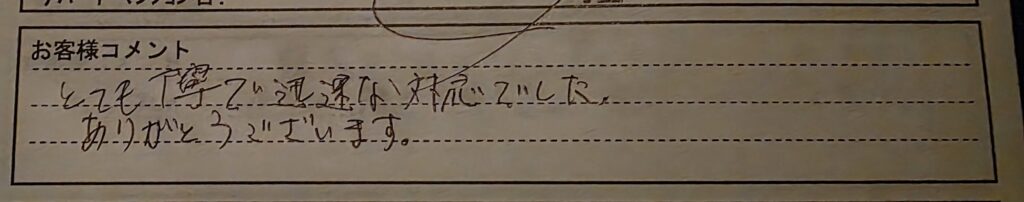 お客様コメント
とても丁寧で迅速な対応でした。
ありがとうございます。